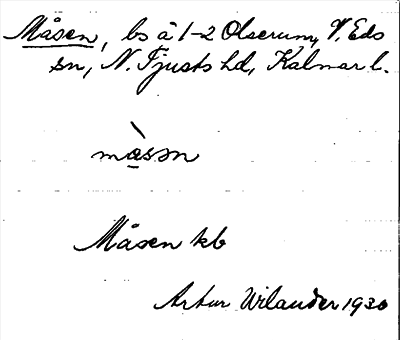 Måsen, bs å 1-2 Olserum, V. Eds
sn, N. Tjusts hd, Kalmar l.
mòsən
Måsen kb
Artur Wilander 1930